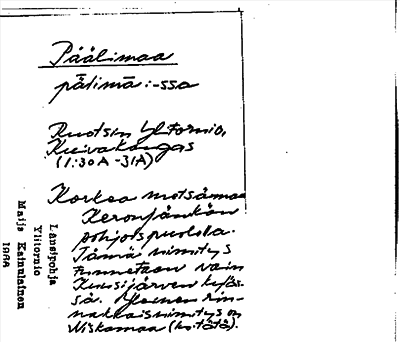 Päälimaa
pälimā :-ssa
Ruotsin Ylitornio,
Kuivakangas
(1:30A-31A)
Korkea metsämaa
Keronjänkän
pohjoispuolella.
Tämä nimitys
tunnetaan vain
Kuusijärven kyläs-
sä. Yleinen rin-
nakkaisnimitys on
Niskamaa (ks. tätä).
Länsipohja
Ylitornio
Maija Kainulainen
1966